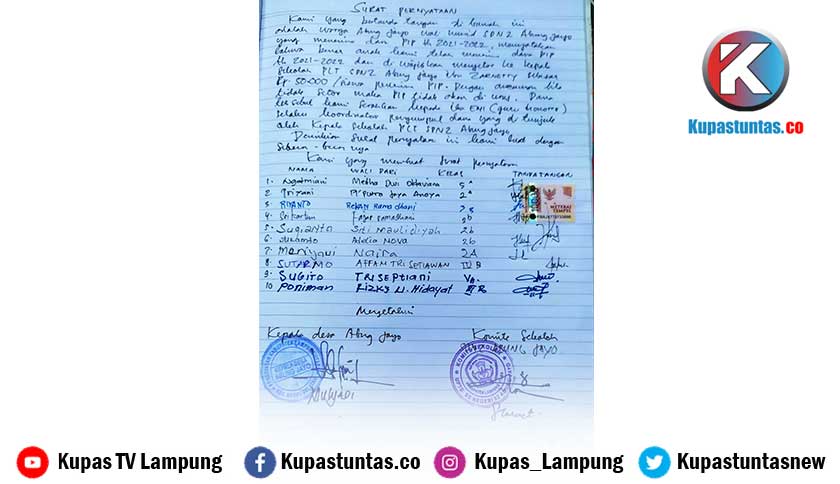 SURAT PERNYATAAN
Kami yang bertanda tangan di bawah ini
adalah warga Abung Jayo wali murid SDN 2 Abung Jayo
yang menerima dana PIP th 2021-2022, menyatakan
bahwa benar anak kami telah menerima dana PIP
th 2021-2022 dan di wajibkan menyetor ke kepala
Sekolah PLT SDN 2 Abung Jayo Ibu
Rp 50.000 /siswa penerima PIP. Dengan ancaman bila
tidak Setor maka PIP tidak akan di urus. Dana
tersebut kami serahkan kepada Ibu ENI (guru honorer)
selaku koordinator pengumpul dana yang di tunjuk
oleh Kepala Sekolah PLT SDN 2 Abung Jayo.
Demikian Surat pernyataan ini kami buat dengan
Sebenar-benarnya
Kami yang membuat Surat pernyataan
NAMA WALI DARI KELAS TANDATANGAN
1. Ngatmiani
2
3 RIYANTO Ramadhani
4. Ramadhani 5b
5. Sugianto Siti Maulidiyah 2b
6. Adelia NOVA 2b
7 Naira 2A
8 SUTARMO AFFAN TRI SETIAWAN III B
9. SUGITO TRI SEPTIANI
10 PONIMAN RIZKY N. Hidayat
METERAI
TEMPEL
Mengetahui
Kepala desa Abung Jayo Komite Sekolah
ABUNG JAYO
KEPALA DESA
ABUNG JAYO
Mulyadi
Slamet
K
Kupastuntas.co
Kupas TV Lampung
Kupastuntas.co
Kupas_Lampung
Kupastuntasnew